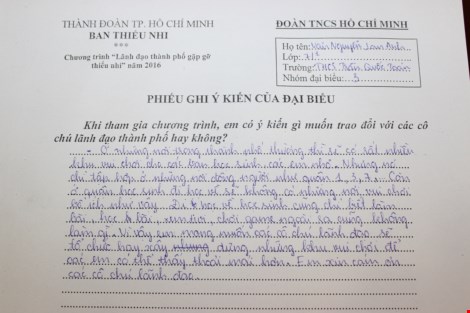 THÀNH ĐOÀN TP. HỒ CHÍ MINH
BAN THIẾU NHI
***
Chương trình "Lãnh đạo thành phố gặp gỡ
thiếu nhi" năm 2016
ĐOÀN TNCS HỒ CHÍ MINH
Họ tên: Nguyễn
Lớp: 7/2
Trường: THCS Trần Quốc Toản
Nhóm đại biểu: 3
PHIẾU GHI Ý KIẾN CỦA ĐẠI BIỂU
Khi tham gia chương trình, em có ý kiến gì muốn trao đổi với các cô
chú lãnh đạo thành phố hay không?
- Ở những nơi trong thành phố thường thì sẽ có rất nhiều
khu vui chơi cho các bạn học sinh, các em nhỏ. Nhưng nó
chỉ tập hợp ở những nơi đông người như quận 1, 3, 7. Còn
ở quận học sinh đi học về sẽ không có những nơi vui chơi
bổ ích như vậy. Đi học về học sinh cũng chỉ biết làm
bài, học bài, xem tivi, chơi game ngoài ra cũng không
làm gì. Vì vậy em mong muốn các cô chú lãnh đạo sẽ
tổ chức hay xây dựng những khu vui chơi để
các em có thể thấy thoải mái hơn. Em xin cảm ơn
các cô chú lãnh đạo.